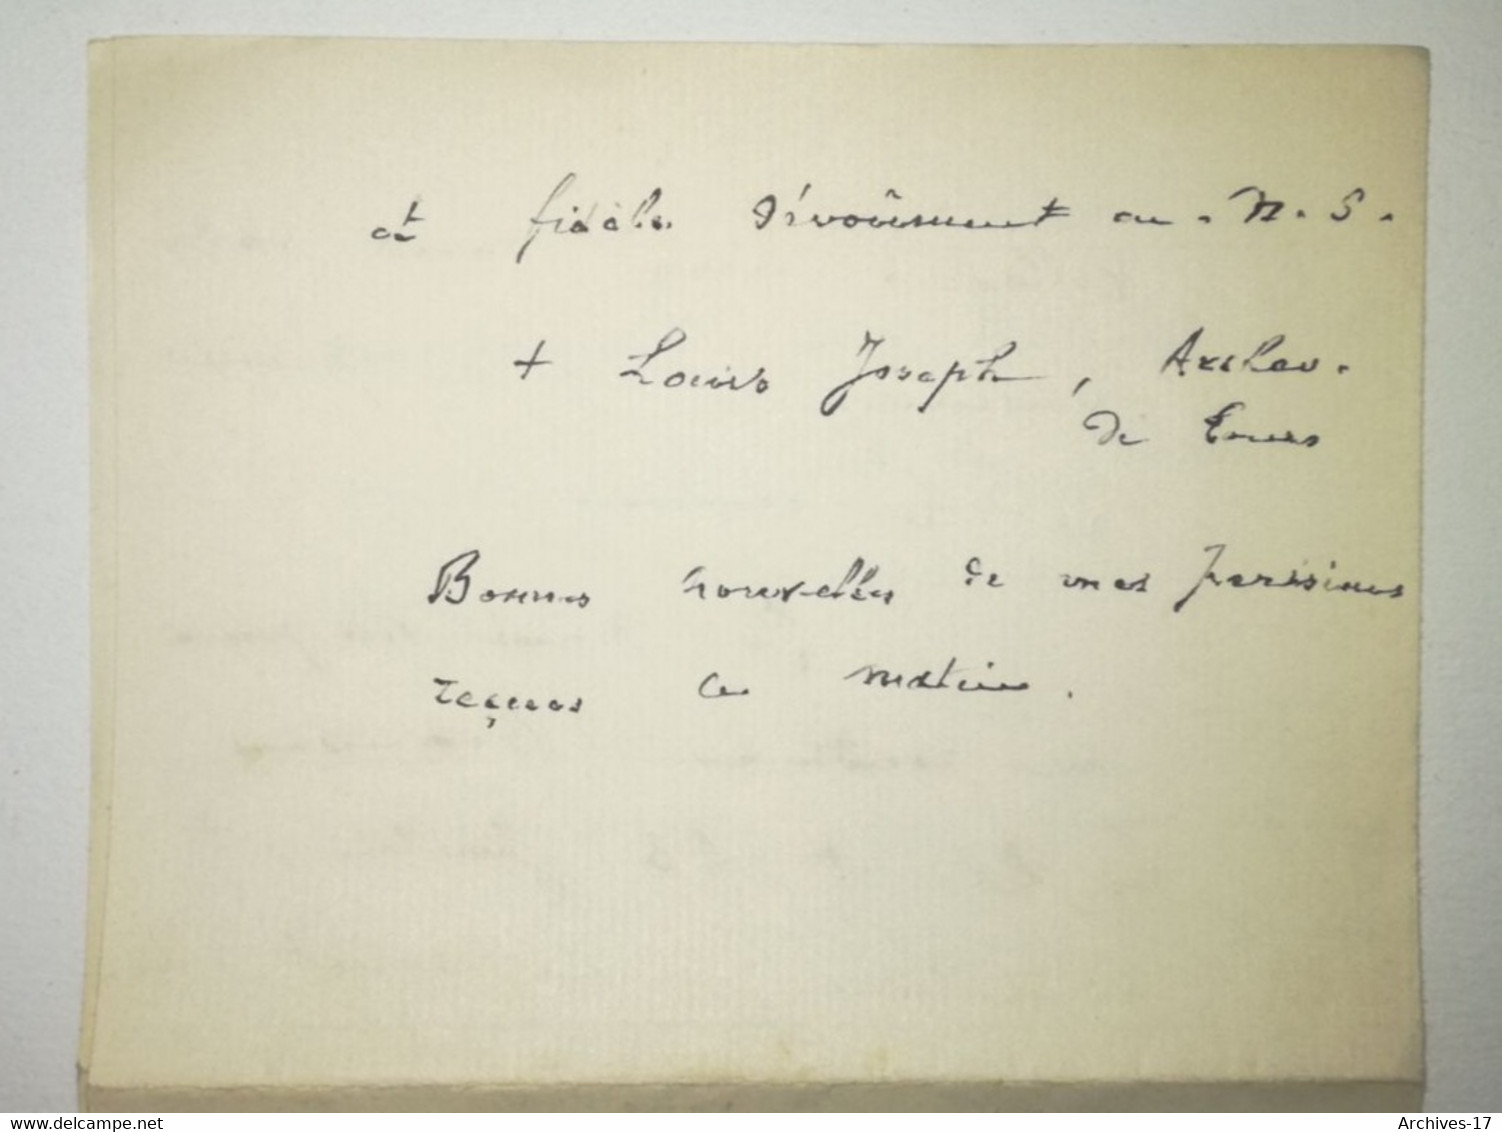 et fidèle dévoûment en . N. S.
+ Louis Joseph, Archev.
de Tours
Bonnes nouvelles de mes parisiens
reçues ce matin.
www.delcampe.net
Archives-17